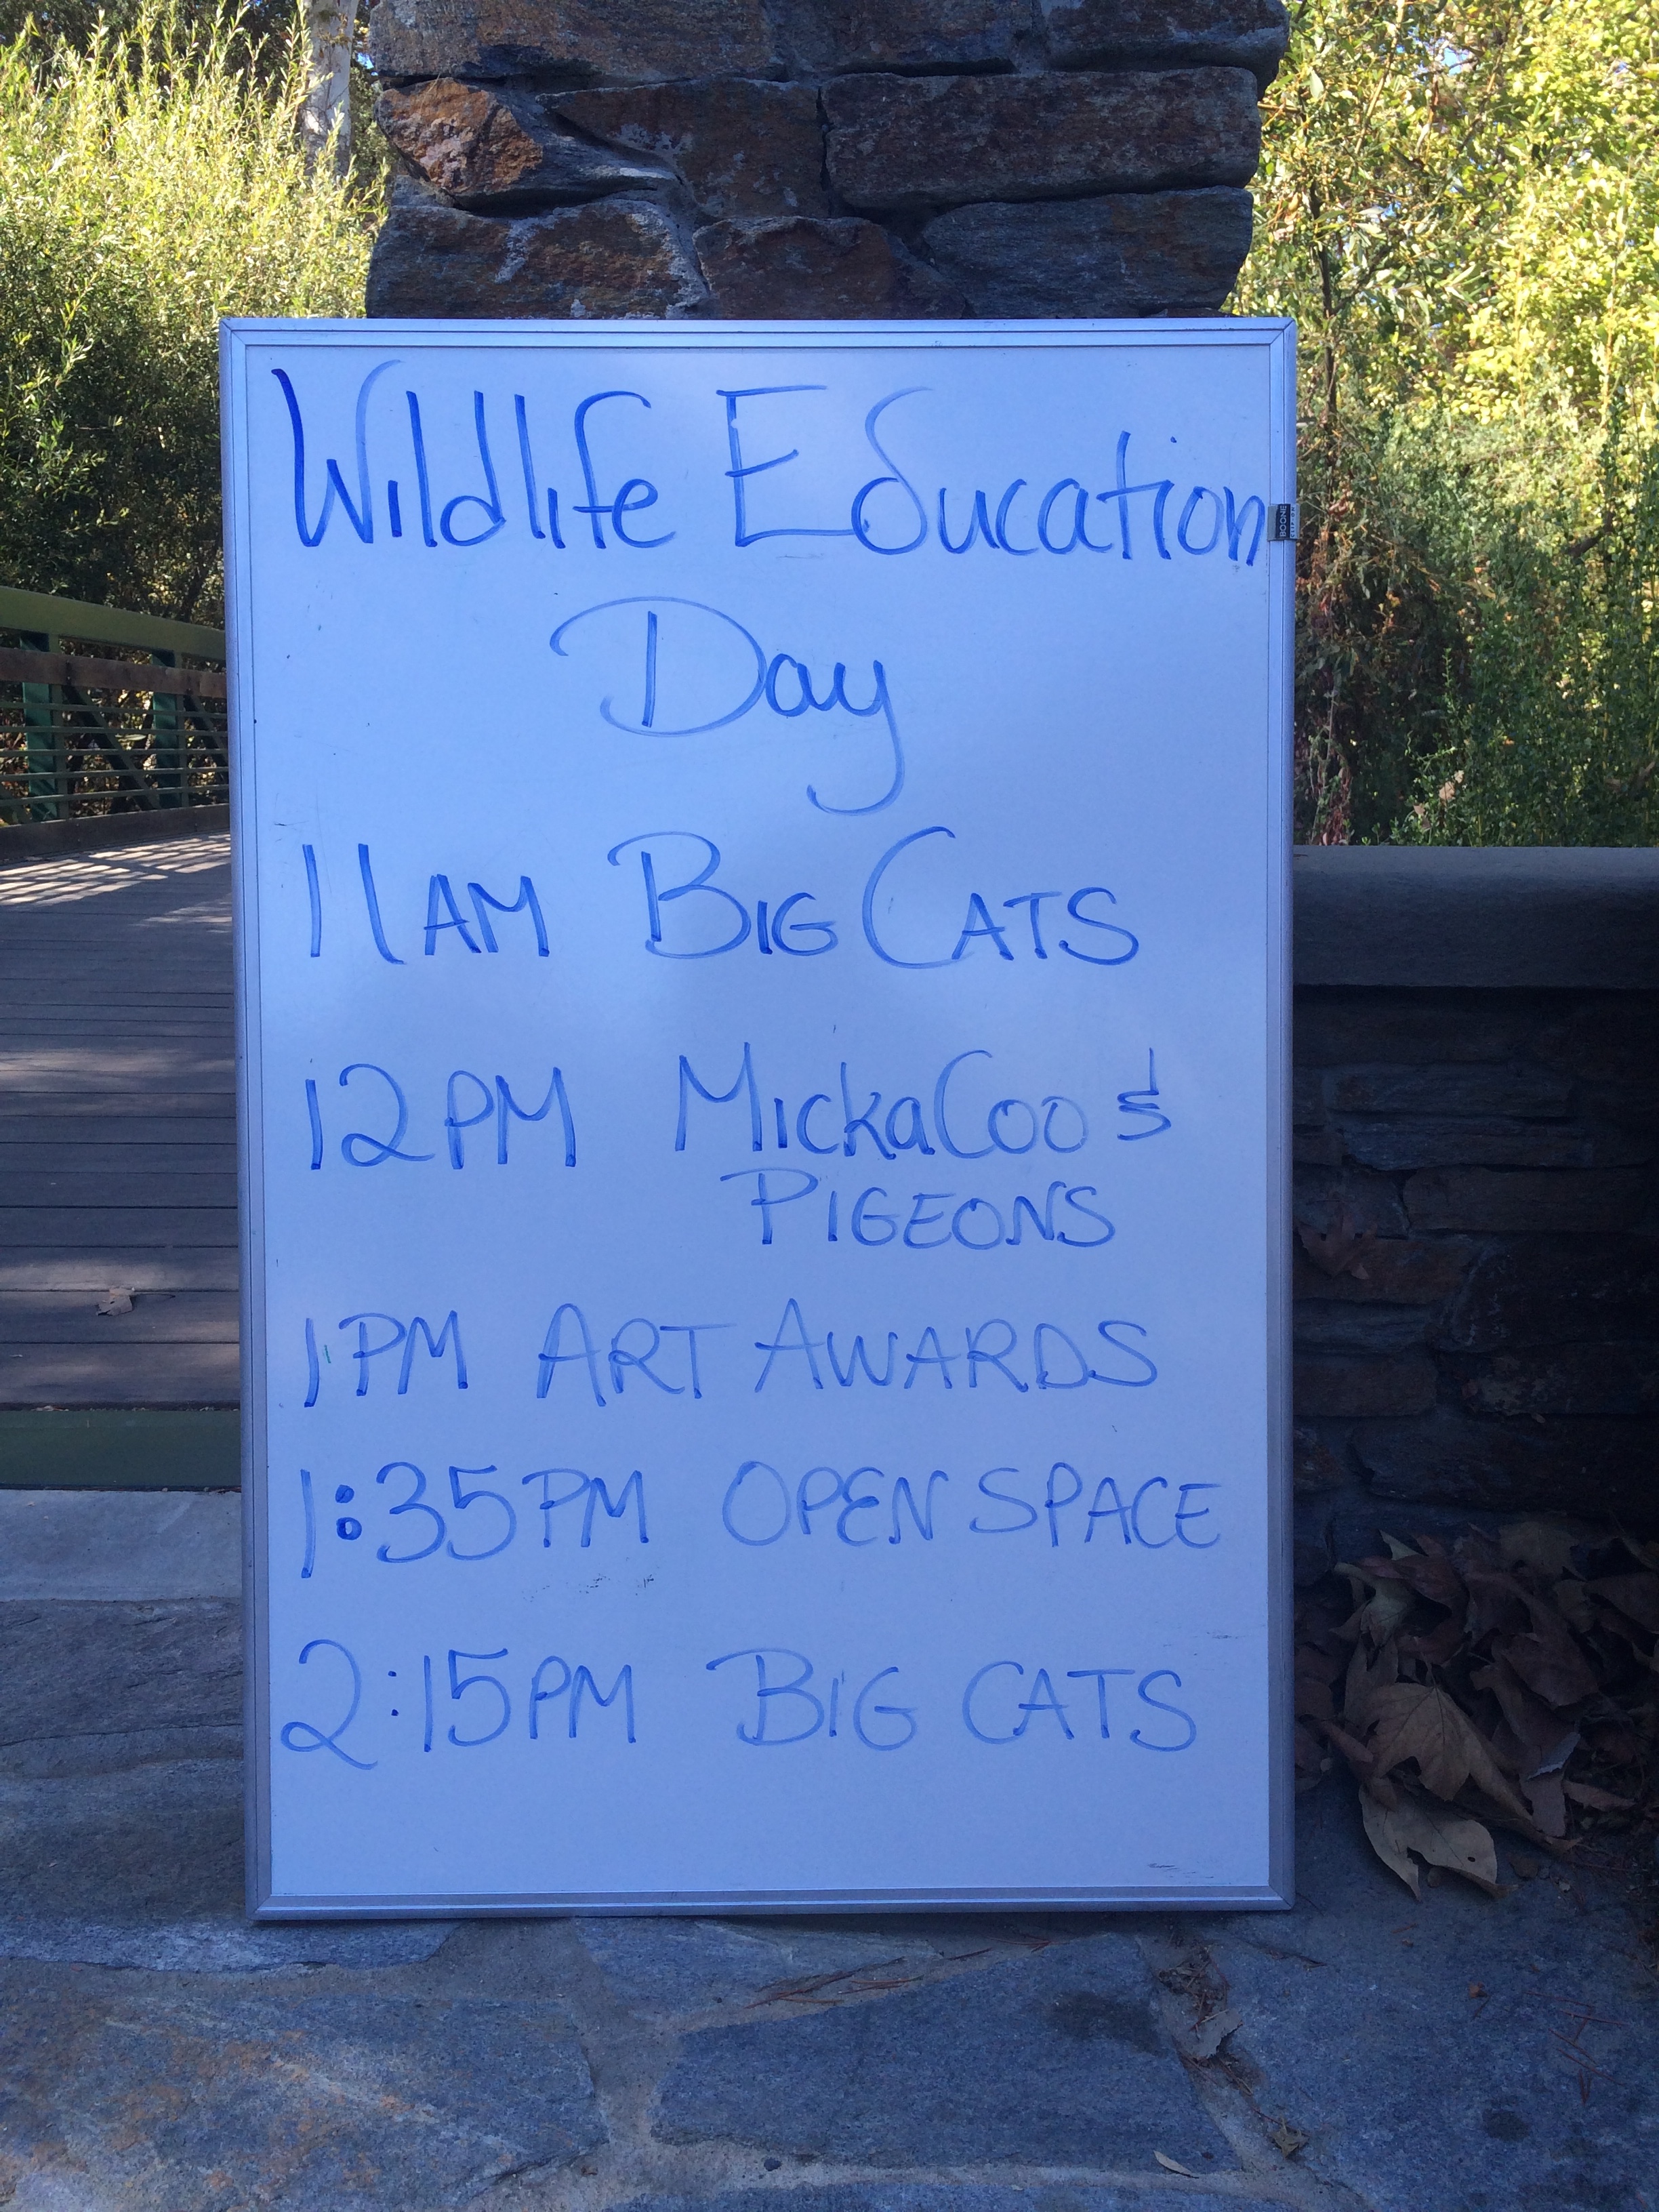 Wildlife Education
Day
11AM BIG CATS
12PM MickaCoo &
PIGEONS
1PM ART AWARDS
1:35PM OPEN SPACE
2:15PM BIG CATS
BOONE